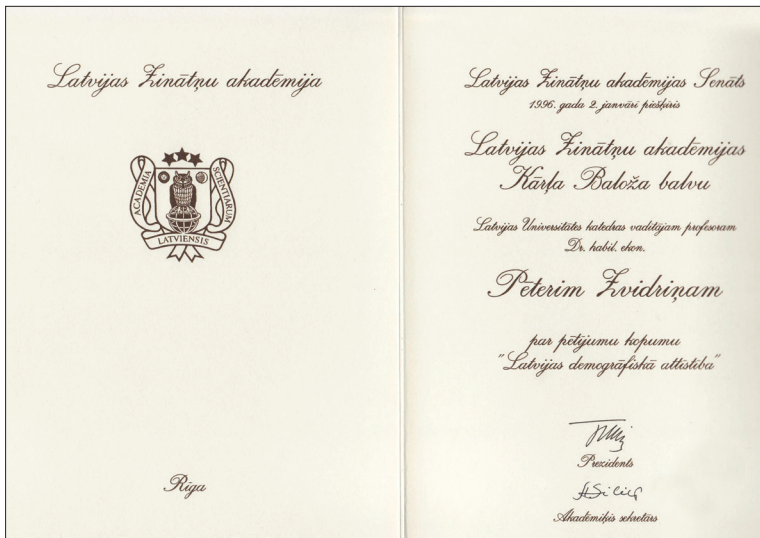 Latvijas Zinātņu akadēmija
ACADEMIA
SCIENTIARUM
LATVIENSIS
Rīga
Latvijas Zinātņu akadēmijas Senāts
1996. gada 2. janvārī piešķīris
Latvijas Zinātņu akadēmijas
Kārļa Baloža balvu
Latvijas Universitātes katedras vadītājam profesoram
Dr. habil. ekon.
Pēterim Zvidriņam
par pētījumu kopumu
"Latvijas demogrāfiskā attīstība"
Prezidents
Akadēmiķis sekretārs